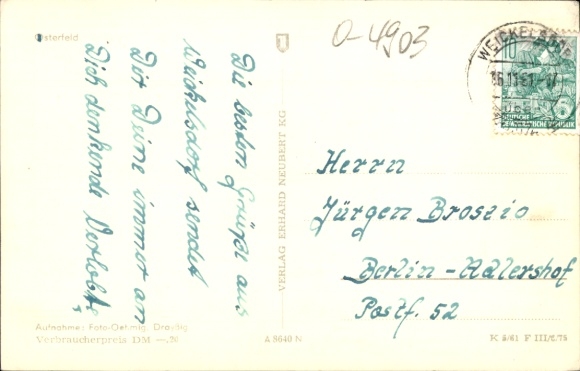 Osterfeld
Die besten Grüße aus
Weickelsdorf sendet
Dir Deine immer an
Dich denkende Verlobte
Aufnahme: Foto-Oehmig, Droyßig
Verbraucherpreis DM —,20
A 8640 N
VERLAG ERHARD NEUBERT KG
0-4903
WEICKELSDORF
10
DEUTSCHE
DEMOKRATISCHE REPUBLIK
Herrn
Jürgen Broszio
Berlin-Adlershof
Postf. 52
K 5/61 F III/6/75